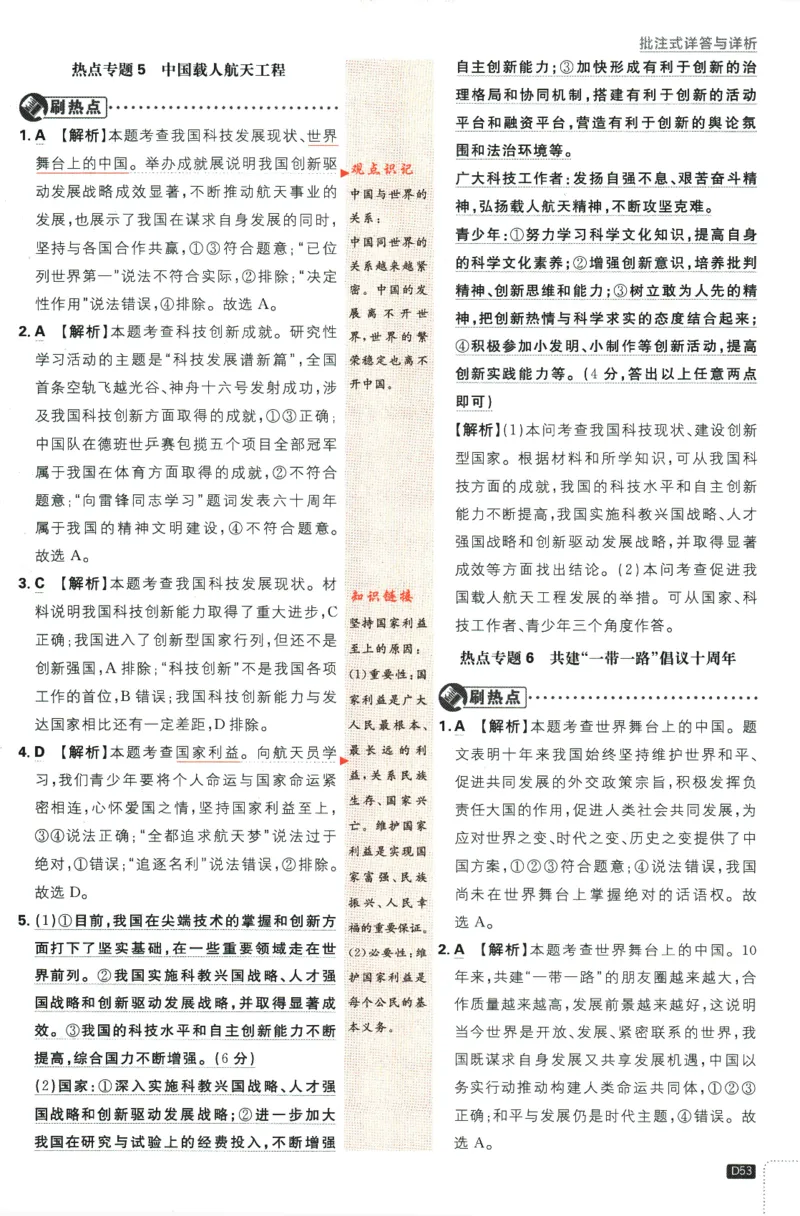 批注式详答与详析
热点专题5 中国载人航天工程
刷热点
1. A 【解析】本题考查我国科技发展现状、世界
舞台上的中国。举办成就展说明我国创新驱
动发展战略成效显著,不断推动航天事业的
发展,也展示了我国在谋求自身发展的同时,
坚持与各国合作共赢,①③符合题意;“已位
列世界第一”说法不符合实际,②排除;“决定
性作用”说法错误,④排除。故选 A。
2. A 【解析】本题考查科技创新成就。研究性
学习活动的主题是“科技发展谱新篇”,全国
首条空轨飞越光谷、神舟十六号发射成功,涉
及我国科技创新方面取得的成就,①③正确;
中国队在德班世乒赛包揽五个项目全部冠军
属于我国在体育方面取得的成就,②不符合
题意;“向雷锋同志学习”题词发表六十周年
属于我国的精神文明建设,④不符合题意。
故选 A。
3. C 【解析】本题考查我国科技发展现状。材
料说明我国科技创新能力取得了重大进步,C
正确;我国进入了创新型国家行列,但还不是
创新强国,A 排除;“科技创新”不是我国各项
工作的首位,B 错误;我国科技创新能力与发
达国家相比还有一定差距,D 排除。
4. D 【解析】本题考查国家利益。向航天员学
习,我们青少年要将个人命运与国家命运紧
密相连,心怀爱国之情,坚持国家利益至上,
③④说法正确;“全都追求航天梦”说法过于
绝对,①错误;“追逐名利”说法错误,②排除。
故选 D。
5. (1)①目前,我国在尖端技术的掌握和创新方
面打下了坚实基础,在一些重要领域走在世
界前列。②我国实施科教兴国战略、人才强
国战略和创新驱动发展战略,并取得显著成
效。③我国的科技水平和自主创新能力不断
提高,综合国力不断增强。(6 分)
(2)国家:①深入实施科教兴国战略、人才强
国战略和创新驱动发展战略;②进一步加大
我国在研究与试验上的经费投入,不断增强
观点识记
中国与世界的
关系:
中国同世界的
关系越来越紧
密。中国的发
展离不开世
界,世界的繁
荣稳定也离不
开中国。
知识链接
坚持国家利益
至上的原因:
(1)重要性:国
家利益是广大
人民最根本、
最长远的利
益,关系民族
生存、国家兴
亡。维护国家
利益是实现国
家富强、民族
振兴、人民幸
福的重要保证。
(2)必要性:维
护国家利益是
每个公民的基
本义务。
自主创新能力;③加快形成有利于创新的治
理格局和协同机制,搭建有利于创新的活动
平台和融资平台,营造有利于创新的舆论氛
围和法治环境等。
广大科技工作者:发扬自强不息、艰苦奋斗精
神,弘扬载人航天精神,不断攻坚克难。
青少年:①努力学习科学文化知识,提高自身
的科学文化素养;②增强创新意识,培养批判
精神、创新思维和能力;③树立敢为人先的精
神,把创新热情与科学求实的态度结合起来;
④积极参加小发明、小制作等创新活动,提高
创新实践能力等。(4 分,答出以上任意两点
即可)
【解析】(1)本问考查我国科技现状、建设创新
型国家。根据材料和所学知识,可从我国科
技方面的成就,我国的科技水平和自主创新
能力不断提高,我国实施科教兴国战略、人才
强国战略和创新驱动发展战略,并取得显著
成效等方面找出结论。(2)本问考查促进我
国载人航天工程发展的举措。可从国家、科
技工作者、青少年三个角度作答。
热点专题6 共建“一带一路”倡议十周年
刷热点
1. A 【解析】本题考查世界舞台上的中国。题
文表明十年来我国始终坚持维护世界和平、
促进共同发展的外交政策宗旨,积极发挥负
责任大国的作用,促进人类社会共同发展,为
应对世界之变、时代之变、历史之变提供了中
国方案,①②③符合题意;④说法错误,我国
尚未在世界舞台上掌握绝对的话语权。故
选 A。
2. A 【解析】本题考查世界舞台上的中国。10
年来,共建“一带一路”的朋友圈越来越大,合
作质量越来越高,发展前景越来越好,这说明
当今世界是开放、发展、紧密联系的世界,我
国既谋求自身发展又共享发展机遇,中国以
务实行动推动构建人类命运共同体,①②③
正确;和平与发展仍是时代主题,④错误。故
选 A。
D53